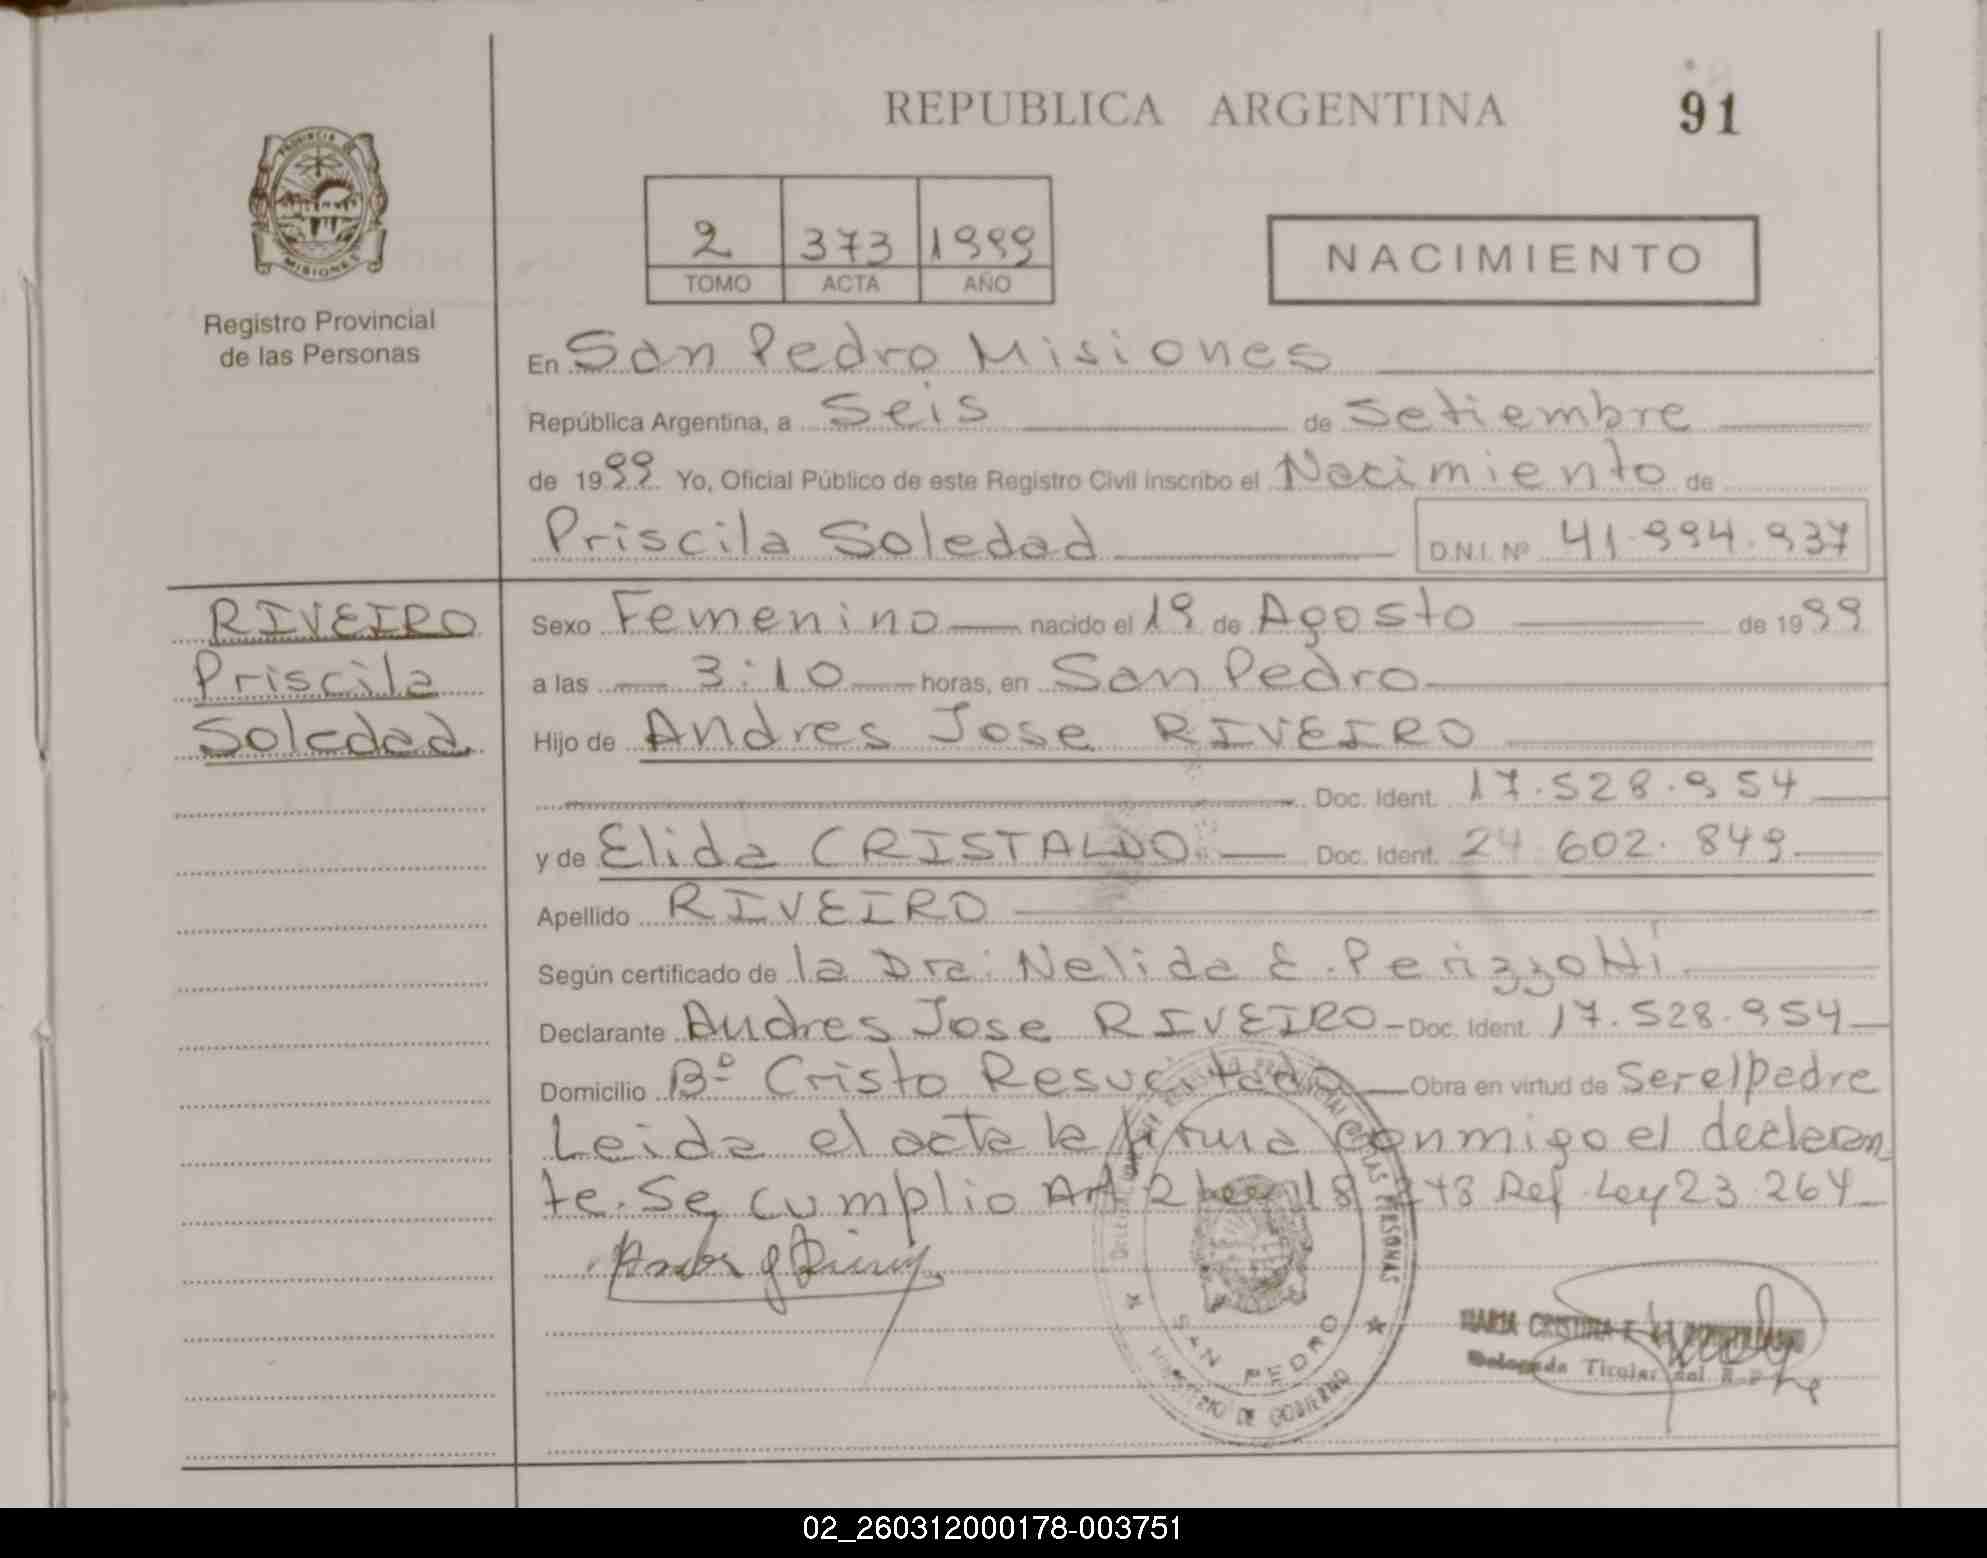 REPUBLICA ARGENTINA
91
PROVINCIA DE
MISIONES
Registro Provincial
de las Personas
2 373 1999
TOMO ACTA AÑO
NACIMIENTO
En San Pedro Misiones
República Argentina, a Seis de Setiembre
de 1999 Yo, Oficial Público de este Registro Civil inscribo el Nacimiento de
Priscila Soledad D.N.I. Nº 41.994.937
RIVEIRO
Priscila
Soledad
Sexo Femenino nacido el 19 de Agosto de 1999
a las 3:10 horas, en San Pedro
Hijo de Andres Jose RIVEIRO
Doc. Ident. 17.528.954
y de Elida CRISTALDO Doc. Ident. 24 602.849
Apellido RIVEIRO
Según certificado de la Dra. Nelida E. Perizzotti
Declarante Andres Jose RIVEIRO Doc. Ident. 17.528.954
Domicilio Bº Cristo Resucitado Obra en virtud de Ser el padre
Leida el acta la firma conmigo el declaran
te. Se cumplio Art 2 Ley 18 248 Ref. Ley 23.264
SAN PEDRO
MINISTERIO DE GOBIERNO
MARIA CRISTINA
Delegada Titular del
02_260312000178-003751